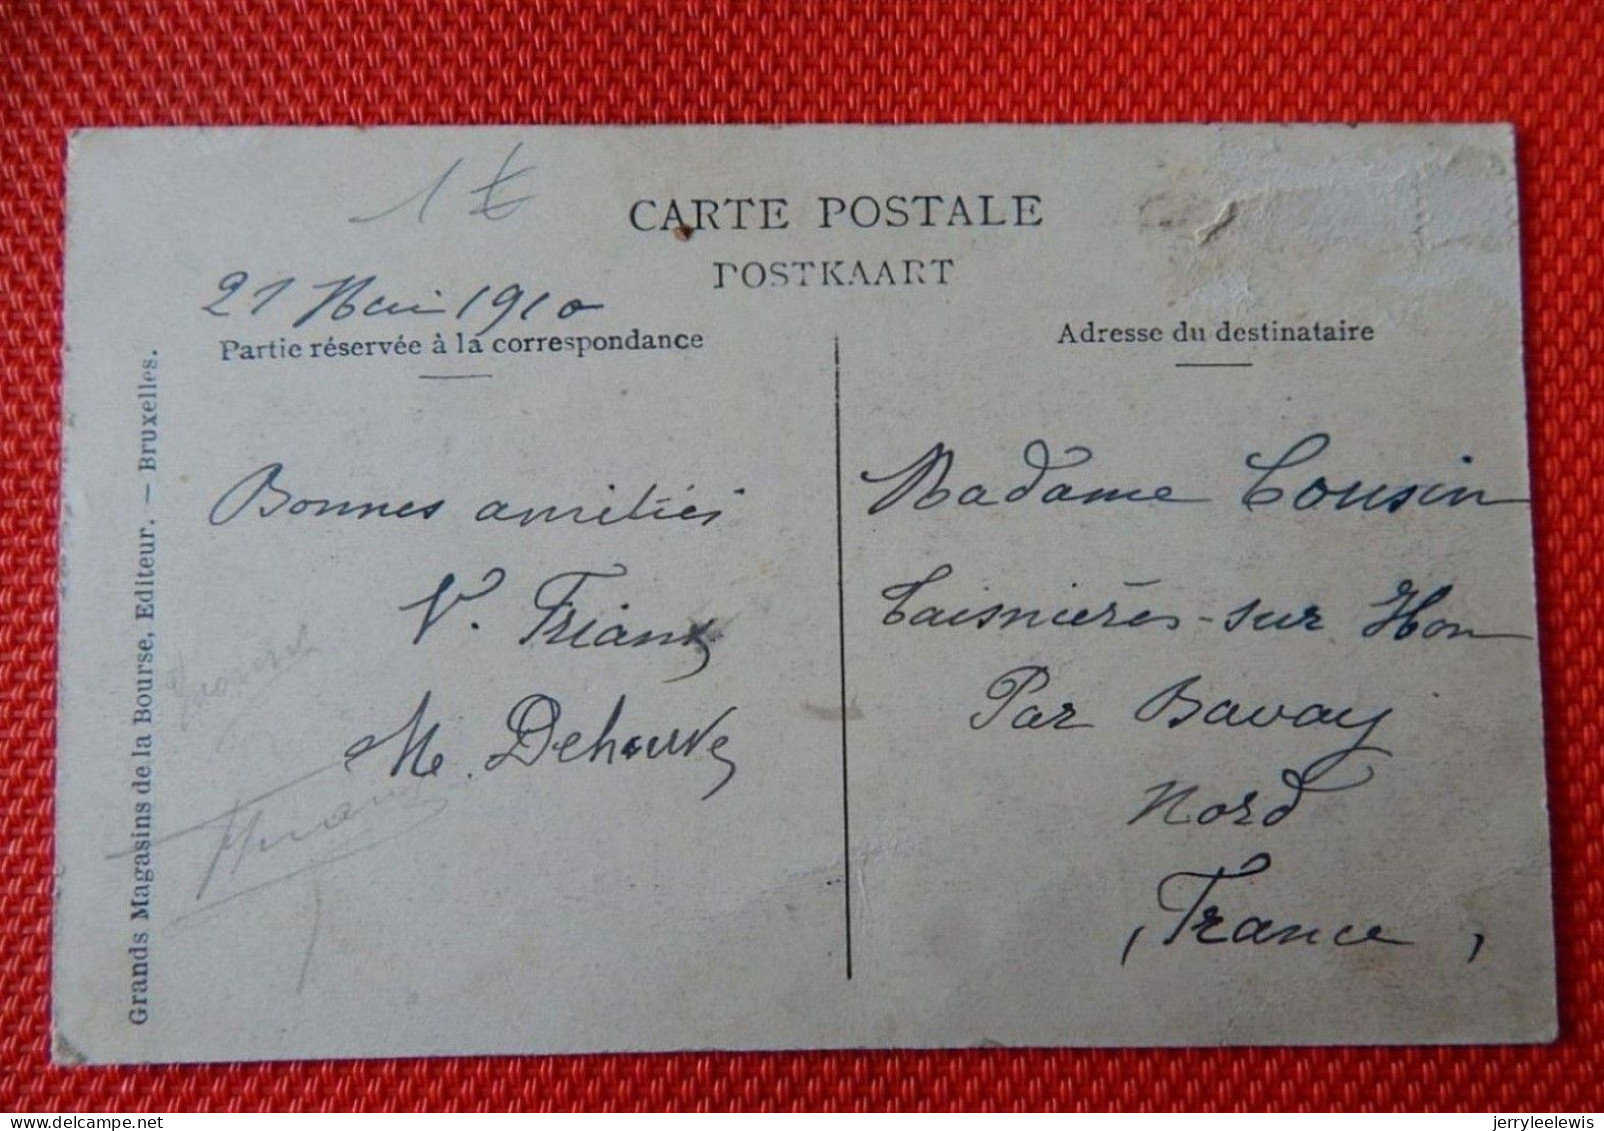 CARTE POSTALE
POSTKAART
21 Mai 1910
Partie réservée à la correspondance
Adresse du destinataire
Grands Magasins de la Bourse, Editeur. — Bruxelles.
Bonnes amitiés
V. Friank
M. Dehouve
Madame Cousin
Taisnières-sur Hon
Par Bavay
Nord
France
jerryleelewis